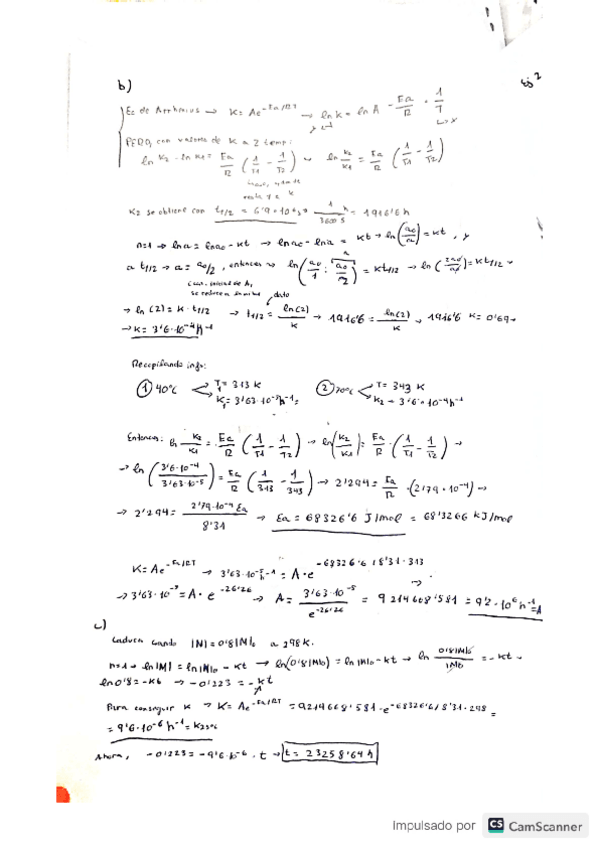 b)
Ej 2
Ec de Arrhenius → K = Ae^-Ea/RT → ln k = ln A - Ea/R · 1/T
PERO, con valores de K a 2 temp:
ln K2 - ln K1 = Ea/R (1/T1 - 1/T2) → ln K2/K1 = Ea/R (1/T1 - 1/T2)
K2 se obtiene con t1/2 = 6'9·10^ s · 1/3600 s = 1916'6 h
n=1 → ln a = ln a0 - kt → ln a0 - ln a = kt → ln (a0/a) = kt, y
a t1/2 → a = a0/2, entonces → ln (a0/1 : a0/2) = K t1/2 → ln (2a0/a0) = K t1/2 →
dato
→ ln (2) = K · t1/2 → t1/2 = ln(2)/K → 1916'6 = ln(2)/K → 1916'6 K = 0'69 →
→ K = 3'6·10^-4 h^-1
Recopilando info:
① 40ºC T1 = 313 K
K1 = 3'63·10^-5 h^-1
② 70ºC T = 343 K
K2 = 3'6·10^-4 h^-1
Entonces: ln K2/K1 = Ea/R (1/T1 - 1/T2) → ln (K2/K1) = Ea/R · (1/T1 - 1/T2) →
→ ln (3'6·10^-4 / 3'63·10^-5) = Ea/R (1/313 - 1/343) → 2'294 = Ea/R · (2'79·10^-4) →
→ 2'294 = 2'79·10^-4 Ea / 8'31 → Ea = 68326'6 J/mol = 68'3266 kJ/mol
K = Ae^-Ea/RT → 3'63·10^-5 h^-1 = A · e^-68326'6/8'31·313 →
→ 3'63·10^-5 = A · e^-26'26 → A = 3'63·10^-5 / e^-26'26 = 9214608'581 = 9'2·10^6 h^-1 = A
c)
Caduca cuando |M| = 0'8|M|0 a 298 K.
n=1 → ln|M| = ln|M|0 - kt → ln(0'8|M|0) = ln|M|0 - kt → ln 0'8|M|0/|M|0 = -kt →
ln 0'8 = -kt → -0'223 = -kt
Para conseguir K → K = Ae^-Ea/RT = 9214608'581 · e^-68326'6/8'31·298 =
= 9'6·10^-6 h^-1 = K25ºC
Ahora, -0'223 = -9'6·10^-6 · t → t = 23258'64 h
Impulsado por CS CamScanner